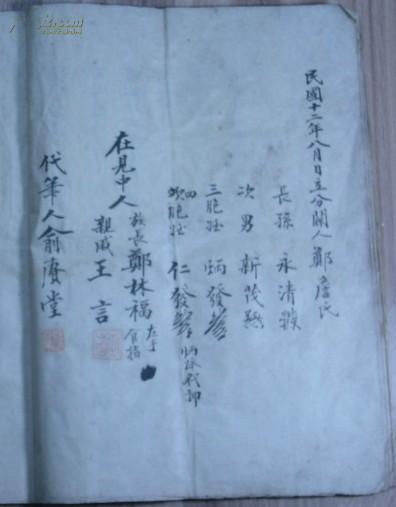 民國十二年八月日立分關人鄭詹氏
長孫 永清
次男 新茂
三胞姪 炳發
四胞姪 仁發 炳 代押
在見中人 族長 鄭林福 左手食指
親戚 王言
代筆人俞賡堂